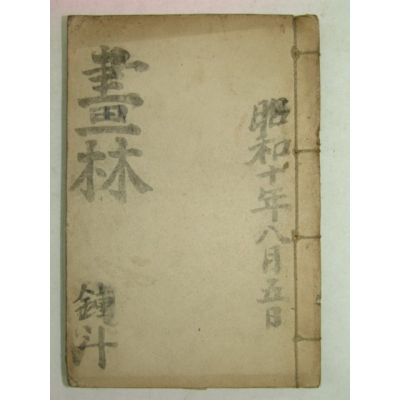 昭和十年八月五日
畫林
斗